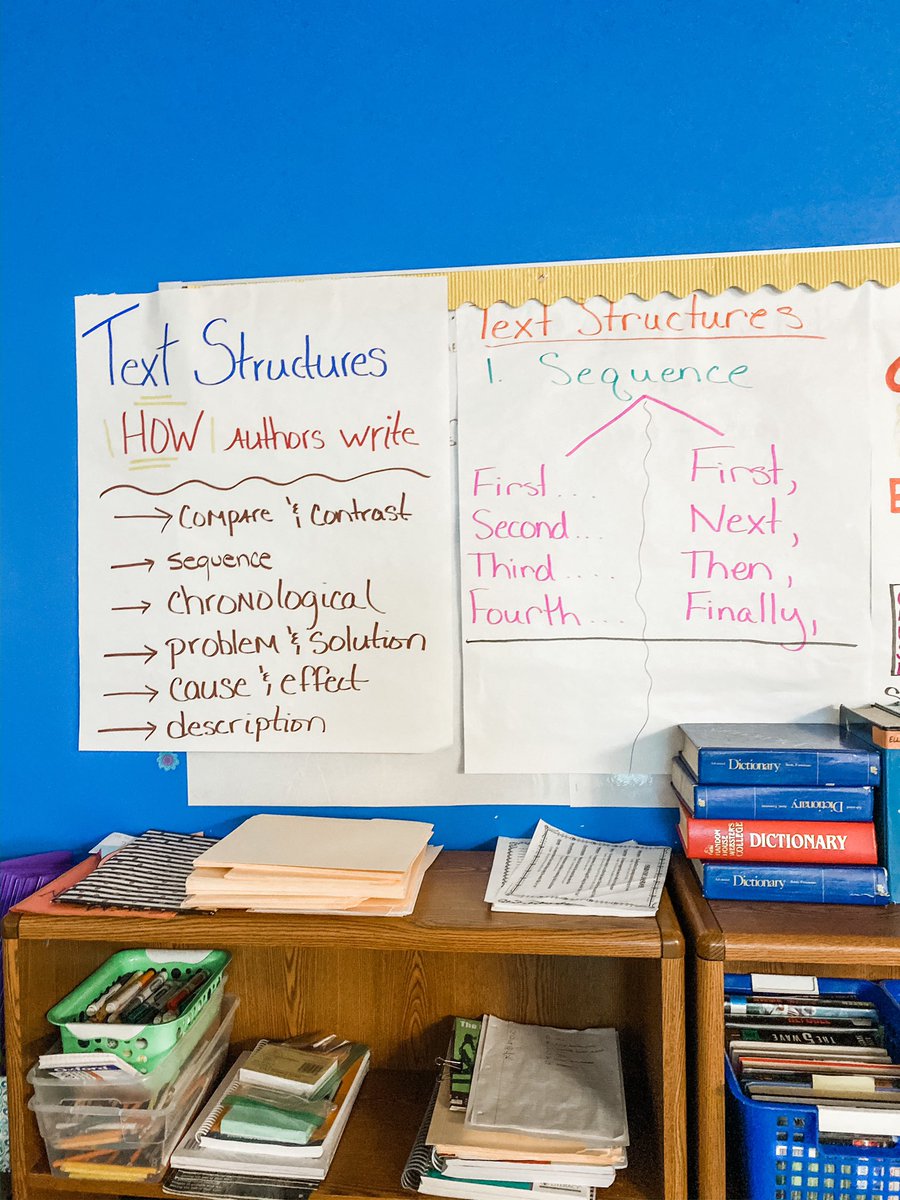 Text Structures
HOW Authors write
→ Compare & Contrast
→ sequence
→ chronological
→ problem & solution
→ cause & effect
→ description
Text Structures
1. Sequence
First....
Second...
Third.....
Fourth....
First,
Next,
Then,
Finally,
Dictionary
Dictionary
RANDOM HOUSE WEBSTER'S COLLEGE DICTIONARY
Dictionary
Oxford
THE 5TH WAVE